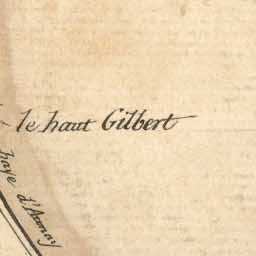 le haut Gilbert
haye d'Aunay